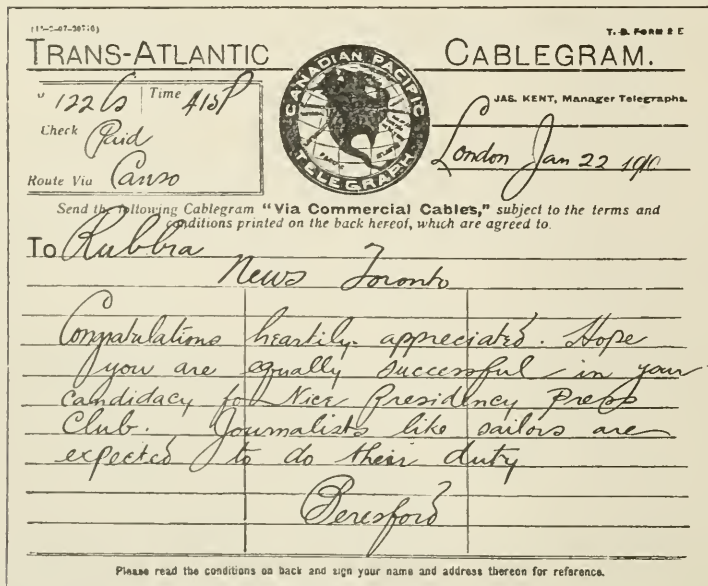 TRANS-ATLANTIC CABLEGRAM.
T. D. FORM 2 E
CANADIAN PACIFIC TELEGRAPH
JAS. KENT, Manager Telegraphs.
Time 415P
Check Paid
Route Via Canso
London Jan 22 1910
Send the following Cablegram "Via Commercial Cables," subject to the terms and
conditions printed on the back hereof, which are agreed to.
To Rubbra
News Toronto
Congratulations heartily appreciated. Hope
you are equally successful in your
candidacy for Vice Presidency Press
Club. Journalists like sailors are
expected to do their duty
Beresford
Please read the conditions on back and sign your name and address thereon for reference.